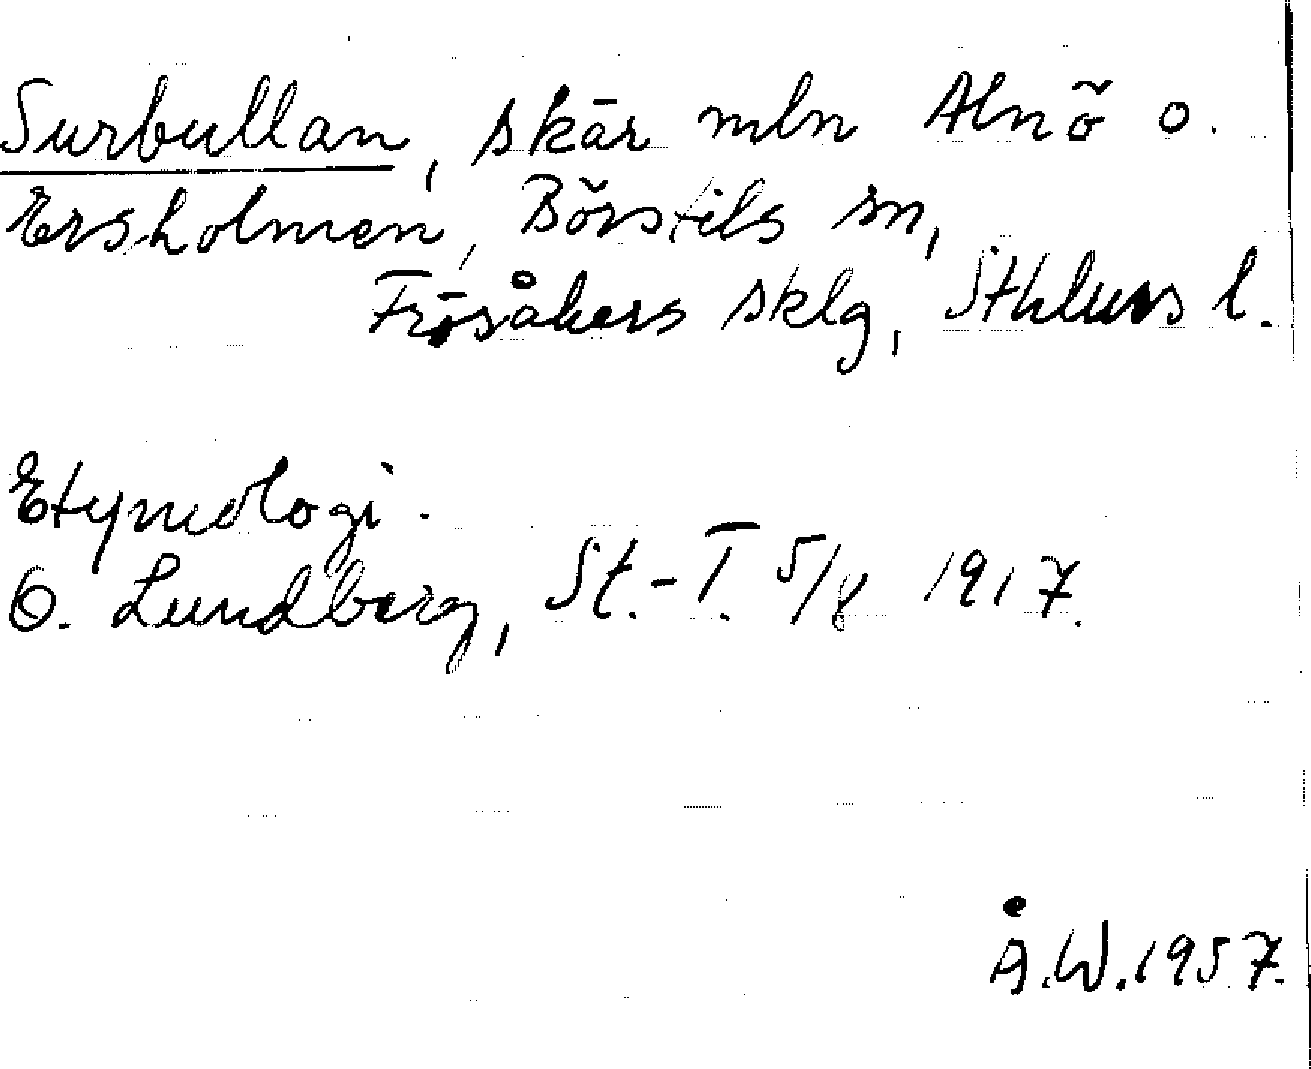 Surbullan, skär mln Alnö o.
Ersholmen, Börstils sn,
Frösåkers sklg, Sthlms l.
Etymologi.
O. Lundberg, St.-T. 5/8 1917.
Å.W. 1957.